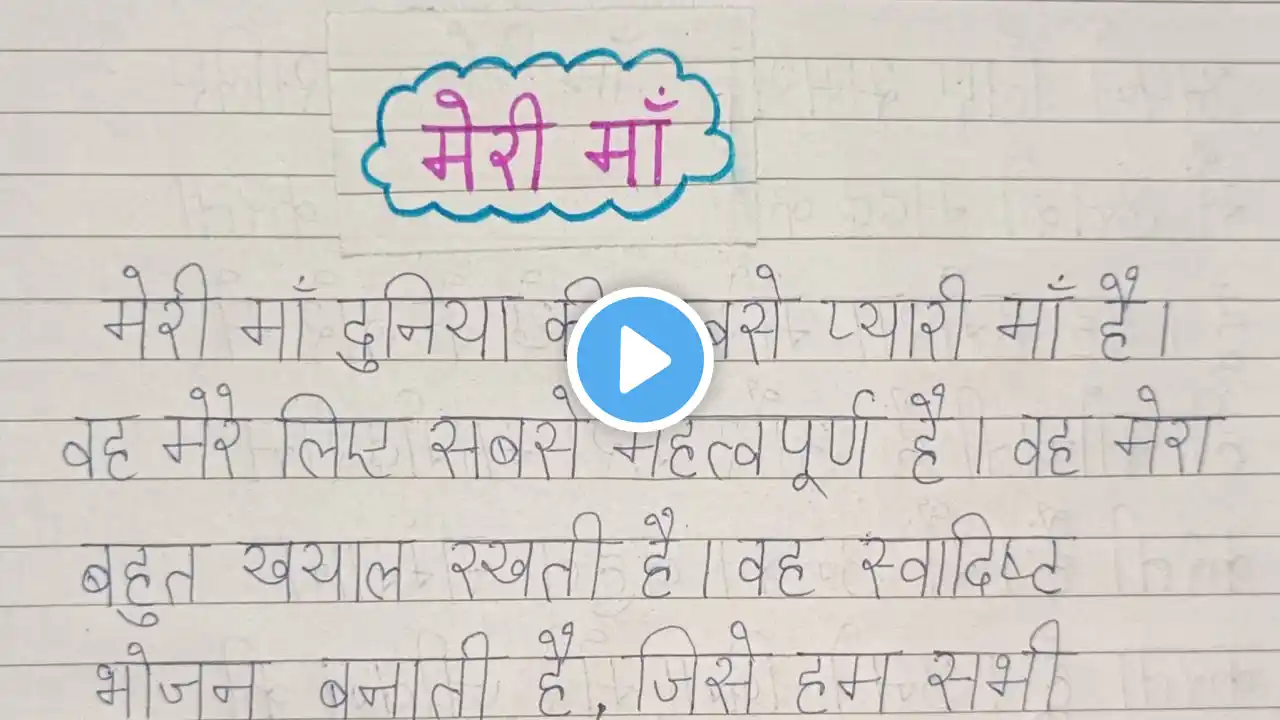 मेरी माँ
मेरी माँ दुनिया की सबसे प्यारी माँ है।
वह मेरे लिए सबसे महत्वपूर्ण है। वह मेरा
बहुत खयाल रखती है। वह स्वादिष्ट
भोजन बनाती है, जिसे हम सभी